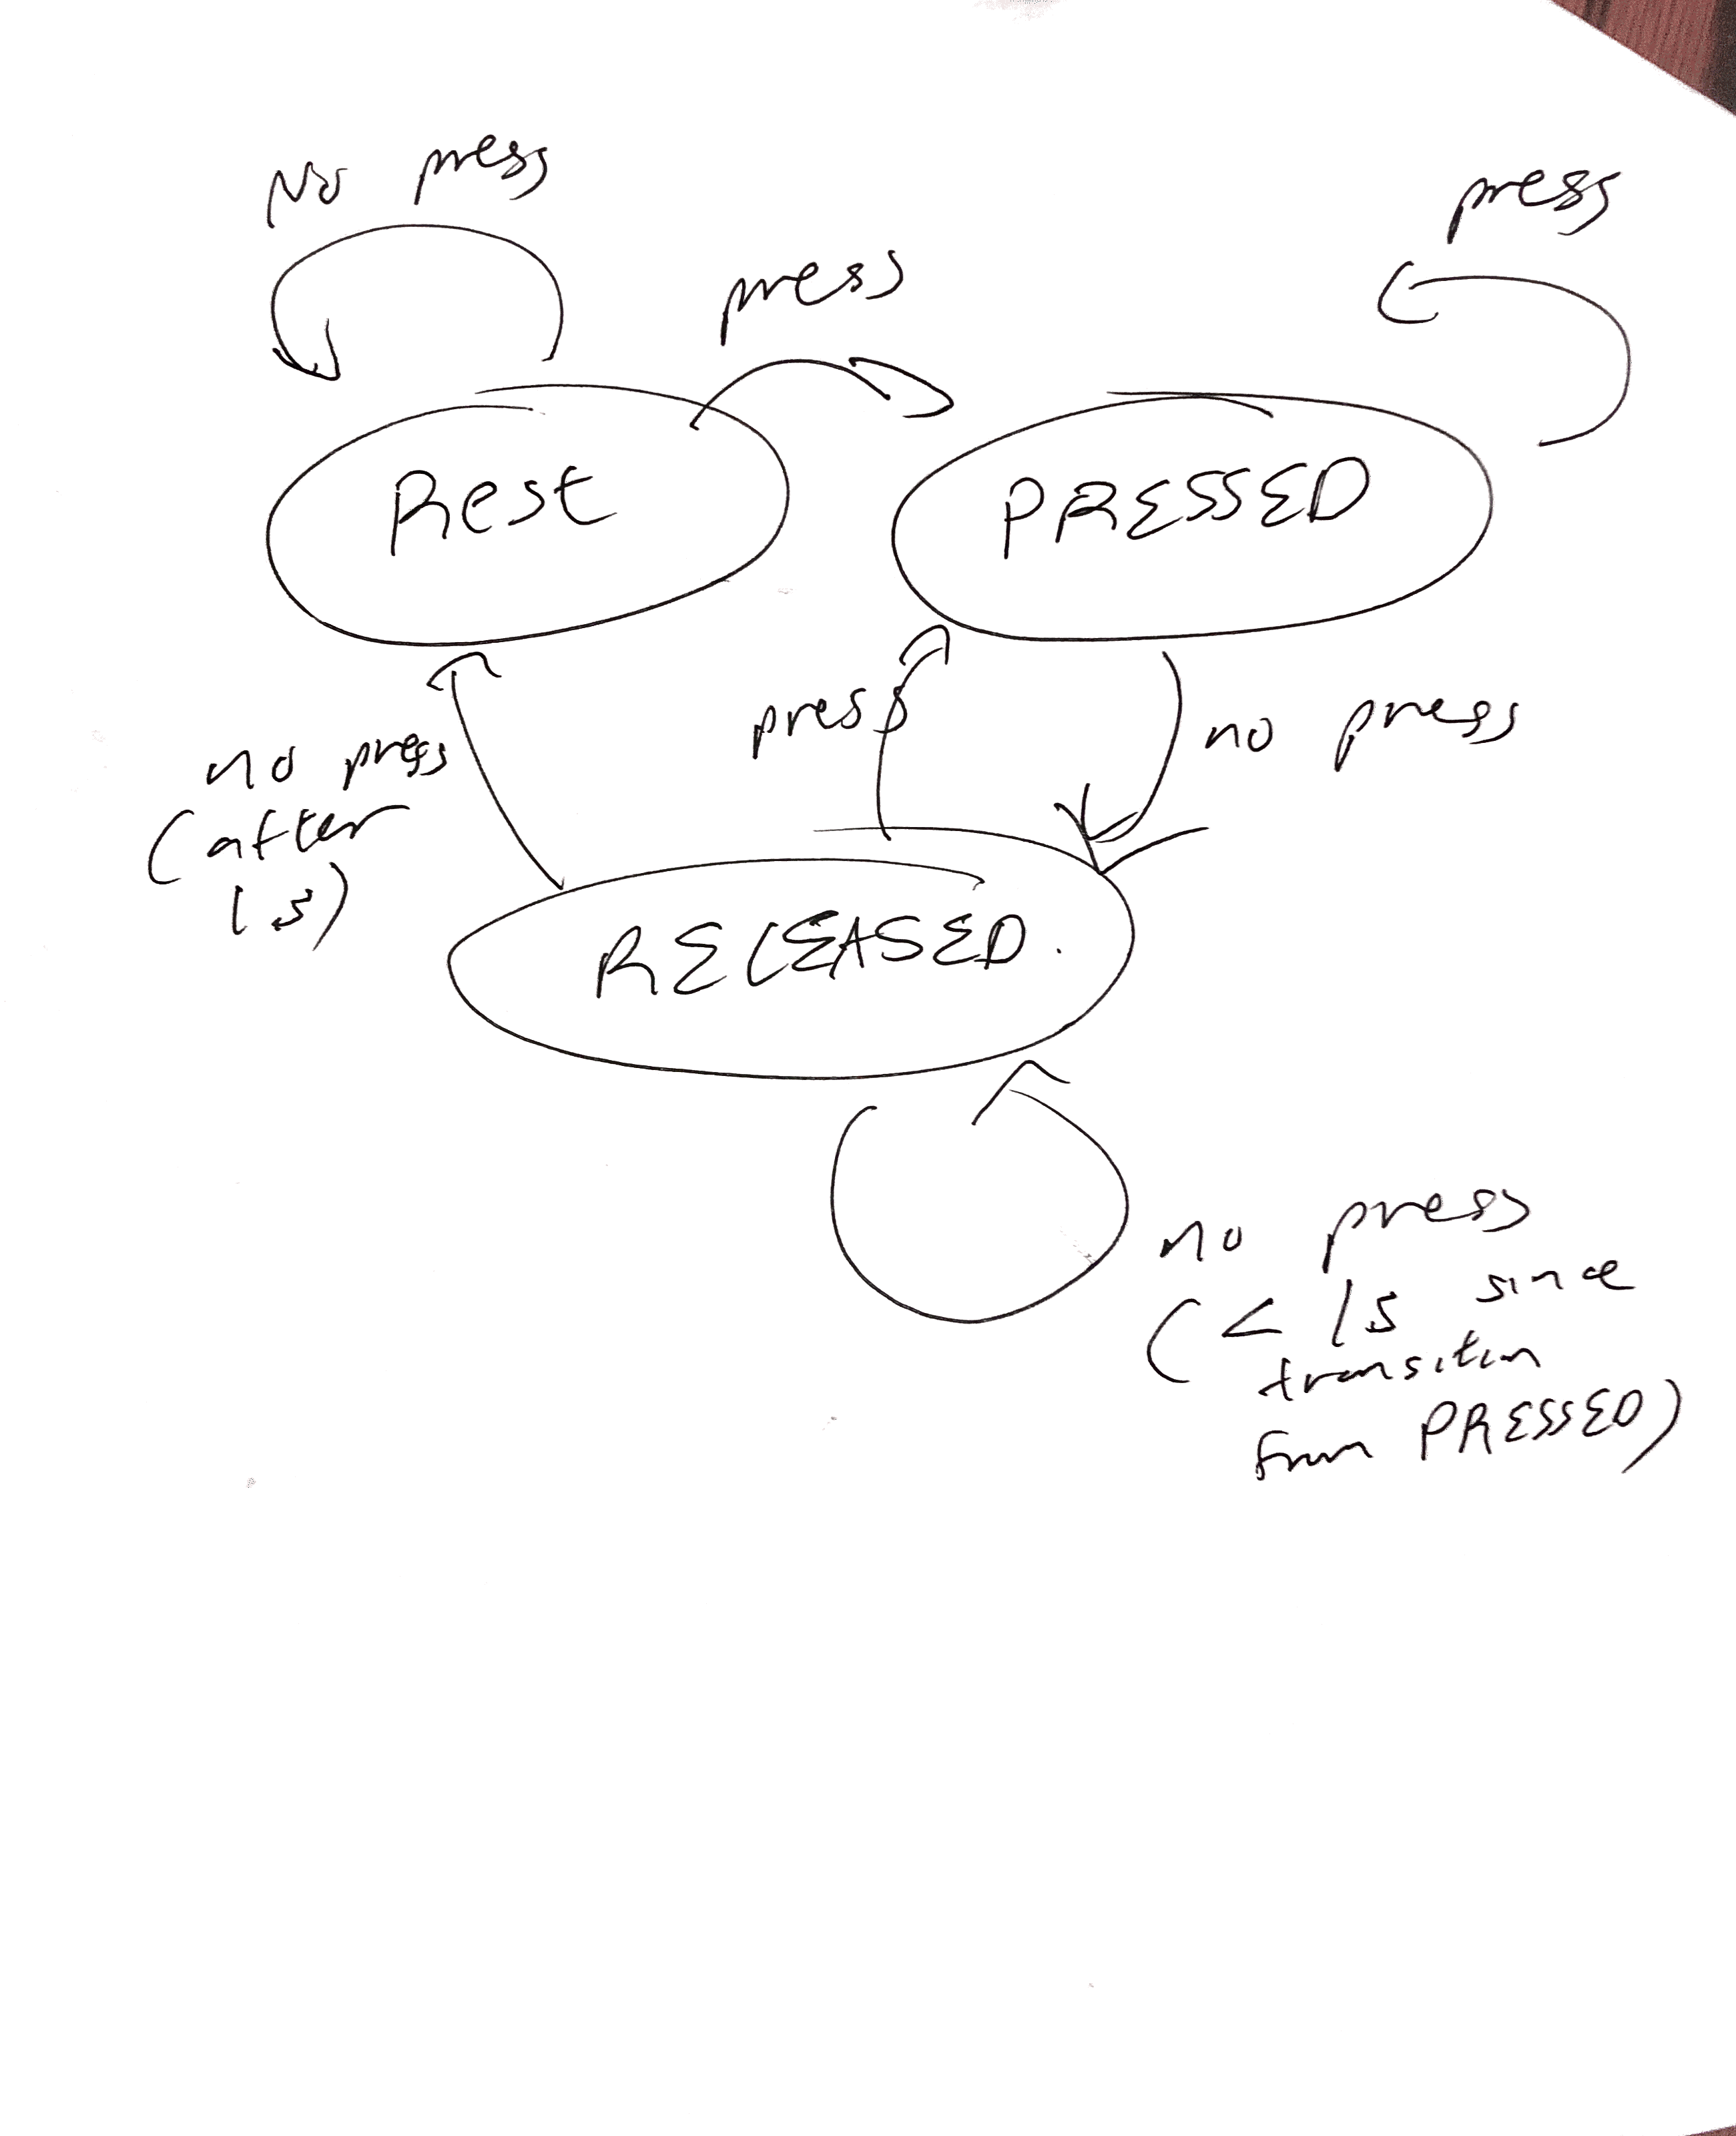 No press
press
press
Rest
PRESSED
no press
(after
1s)
press
no press
RELEASED.
no press
(< 1s since
transition
from PRESSED)